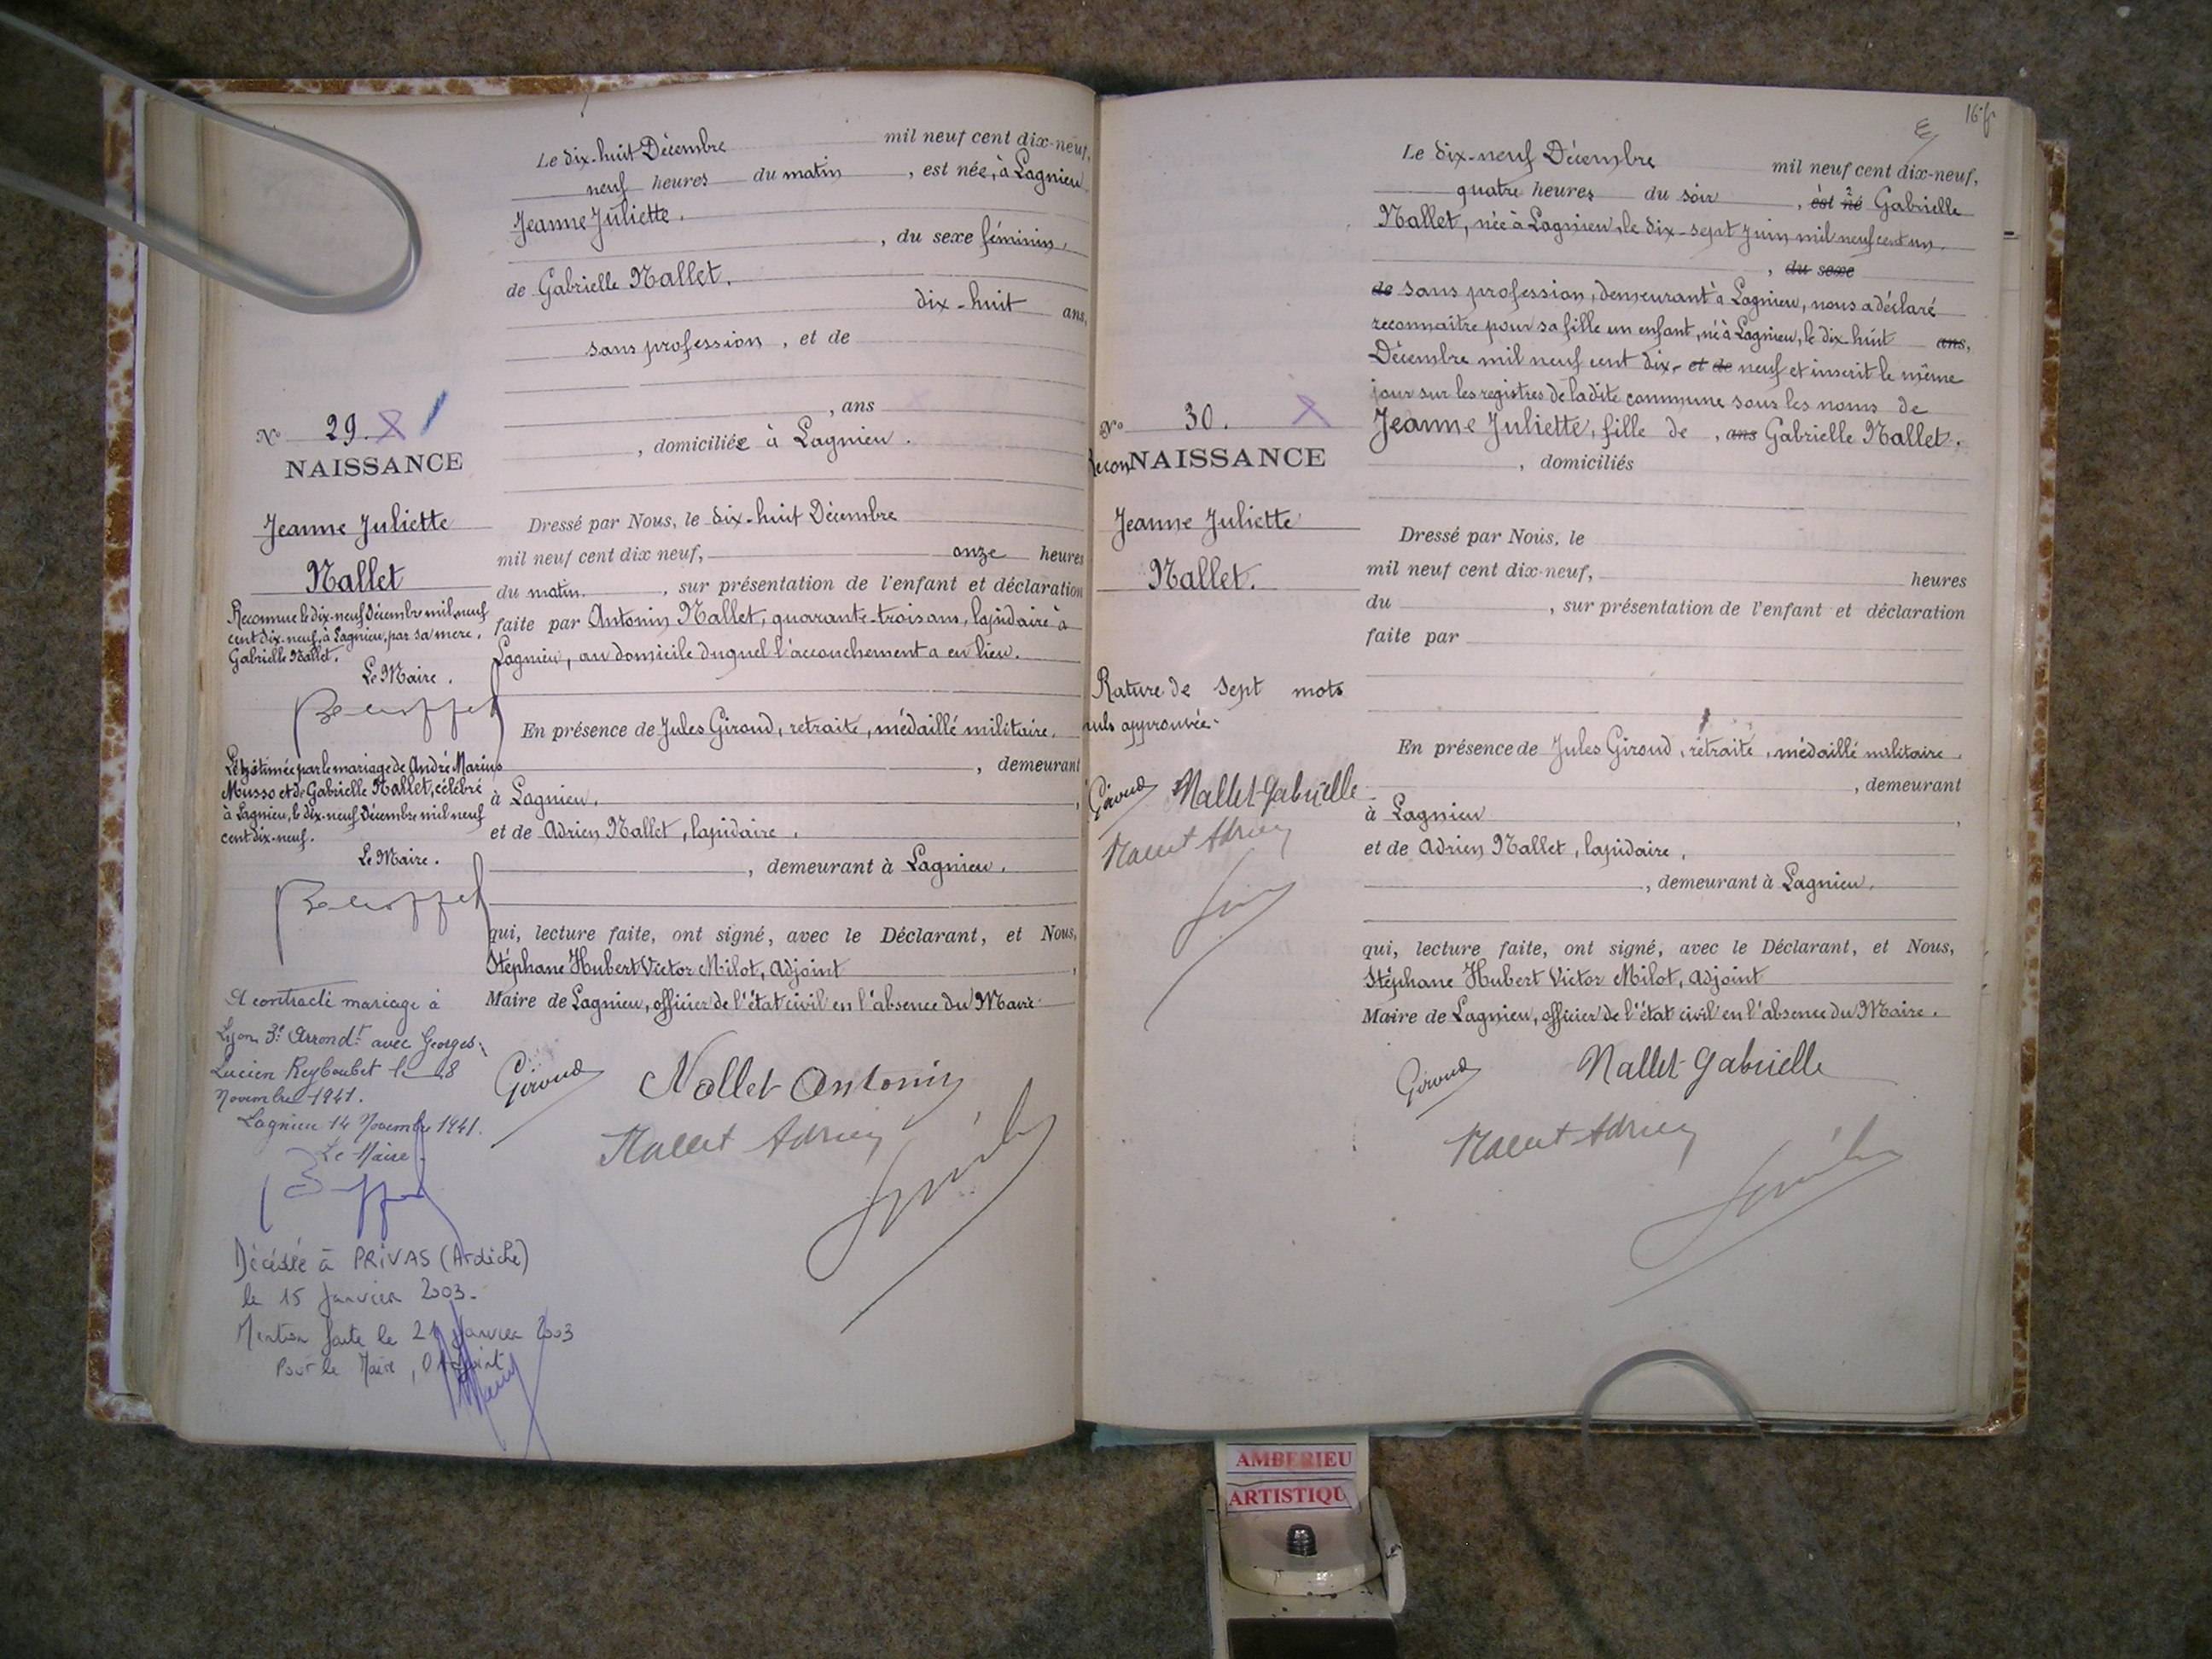 Le dix-huit Décembre mil neuf cent dix-neuf,
neuf heures du matin, est née, à Lagnieu
Jeanne Juliette.
, du sexe féminin,
de Gabrielle Nallet,
dix-huit ans,
sans profession, et de
, ans
, domiciliée à Lagnieu.
N° 29.
NAISSANCE
Jeanne Juliette
Nallet
Reconnue le dix-neuf Décembre mil neuf
cent dix-neuf, à Lagnieu, par sa mère,
Gabrielle Nallet.
Le Maire.
Légitimée par le mariage de André Marius
Musso et de Gabrielle Nallet, célébré
à Lagnieu, le dix-neuf Décembre mil neuf
cent dix-neuf.
Le Maire.
A contracté mariage à
Lyon 3e Arrondt avec Georges
Lucien Reyboubet le 8
Novembre 1941.
Lagnieu 14 Novembre 1941.
Le Maire.
Décédée à PRIVAS (Ardèche)
le 15 Janvier 2003.
Mention faite le 21 Janvier 2003
Pour le Maire,
Dressé par Nous, le dix-huit Décembre
mil neuf cent dix neuf, onze heures
du matin, sur présentation de l'enfant et déclaration
faite par Antonin Nallet, quarante-trois ans, lapidaire à
Lagnieu, au domicile duquel l'accouchement a eu lieu.
En présence de Jules Giroud, retraité, médaillé militaire,
, demeurant
à Lagnieu,
et de Adrien Nallet, lapidaire,
, demeurant à Lagnieu.
qui, lecture faite, ont signé, avec le Déclarant, et Nous,
Stéphane Hubert Victor Milot, Adjoint
Maire de Lagnieu, officier de l'état civil en l'absence du Maire.
Giroud Nallet Antonin
Nallet Adrien
16 f.
Le dix-neuf Décembre mil neuf cent dix-neuf,
quatre heures du soir, est né Gabrielle
Nallet, née à Lagnieu, le dix-sept Juin mil neuf cent un.
, du sexe
de sans profession, demeurant à Lagnieu, nous a déclaré
reconnaître pour sa fille un enfant, né à Lagnieu, le dix-huit ans,
Décembre mil neuf cent dix- et de neuf et inscrit le même
jour sur les registres de ladite commune sous les noms de
Jeanne Juliette, fille de , ans Gabrielle Nallet.
, domiciliés
N° 30.
Recon NAISSANCE
Jeanne Juliette
Nallet.
Rature de sept mots
nuls approuvée.
Giroud Nallet Gabrielle
Nallet Adrien
Dressé par Nous, le
mil neuf cent dix-neuf, heures
du , sur présentation de l'enfant et déclaration
faite par
En présence de Jules Giroud, retraité, médaillé militaire,
, demeurant
à Lagnieu,
et de Adrien Nallet, lapidaire,
, demeurant à Lagnieu,
qui, lecture faite, ont signé, avec le Déclarant, et Nous,
Stéphane Hubert Victor Milot, Adjoint
Maire de Lagnieu, officier de l'état civil en l'absence du Maire.
Giroud Nallet Gabrielle
Nallet Adrien
AMBERIEU
ARTISTIQU